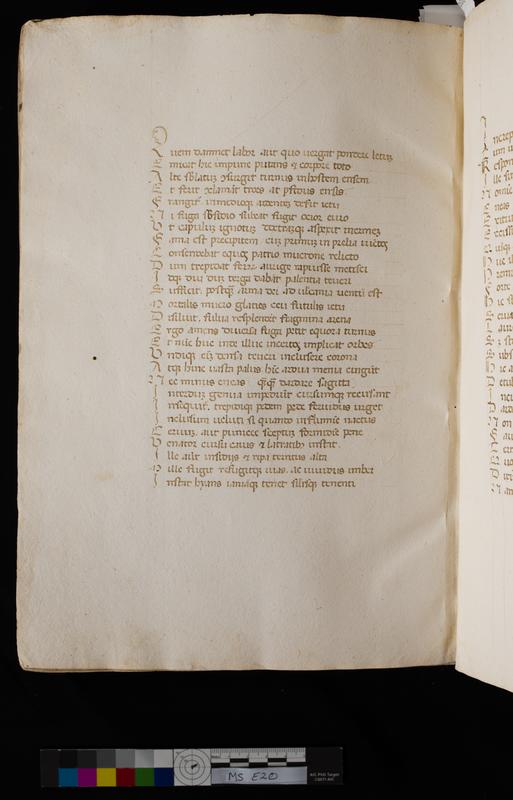 Q
uem damnet labor aut quo uergat pondere letuz
Emicat hic impune putans & corpore toto
Alte sblatuz ɔsurgit turnus inhostem ensem
Et ferit exclamāt troes at pfidus ensis
Frangit inmedioqȝ ardentez deserit ictu
Ni fuga sbsidio subeat fugit ocior euro
Vt capuluz ignotuz dextrāqȝ aspexit inermez
Fama est precipitem cuz primuz in prelia iūctos
Conscendebat equos patrio mucrone relicto
Dum trepidat ferrū aurige rapuisse metisci
Idqȝ diu dum terga dabāt palantia teucri
Suffecit postqȝ arma dei ad ulcania uentū est
Mortalis mucro glacies ceu futilis ictu
Dissiluit fulua resplendēt fragmina arena
Ergo amens diuersa fuga petit equora turnus
Et nūc huc inde illuc incertos implicat orbes
Vndiqȝ eĩ densa teucri inclusere corona
Atqȝ hinc uasta palus hīc ardua menia cingūt
Nec minus eneas qȝqȝ dardare sagitta
Interduz genua impediūt cursumqȝ recusant
Insequit trepidiqȝ pedem pede feruidus urget
Inclusum ueluti si quando influmīe nactus
Ceruuz aut punicee sceptuz formidīe pene
Venator cursu canis & latratibȝ instat
Ille aūt insidiis & ripa territus alta
Mille fugit refugitqȝ uias ac uiuidus umber
Instat hyans iamiāqȝ tenet silisqȝ tenenti
MS E20